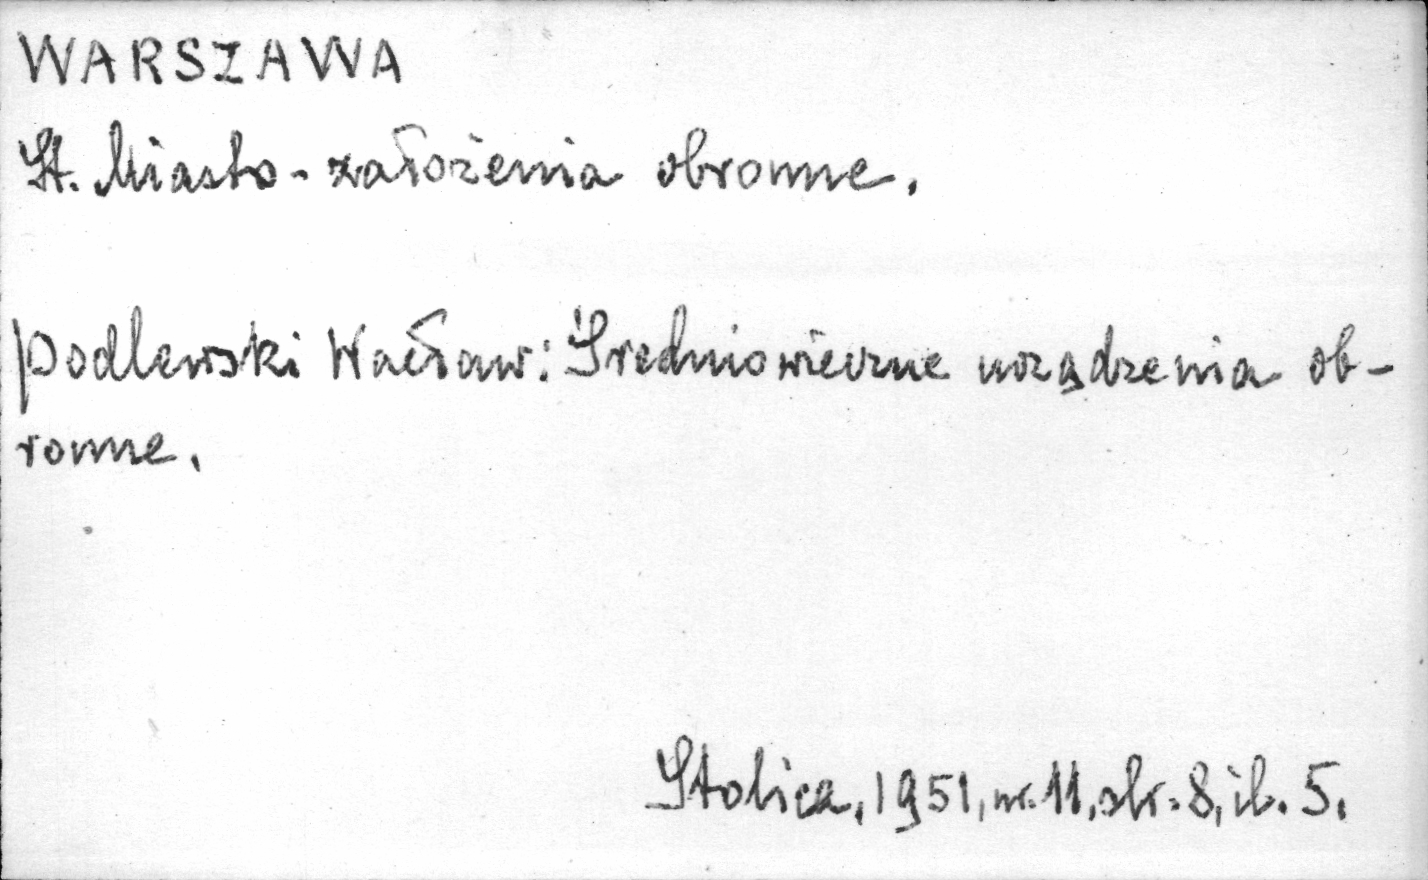 WARSZAWA
St. Miasto - założenia obronne.
Podlewski Wacław: Średniowieczne urządzenia ob-
ronne.
Stolica, 1951, nr. 11, str. 8, il. 5.